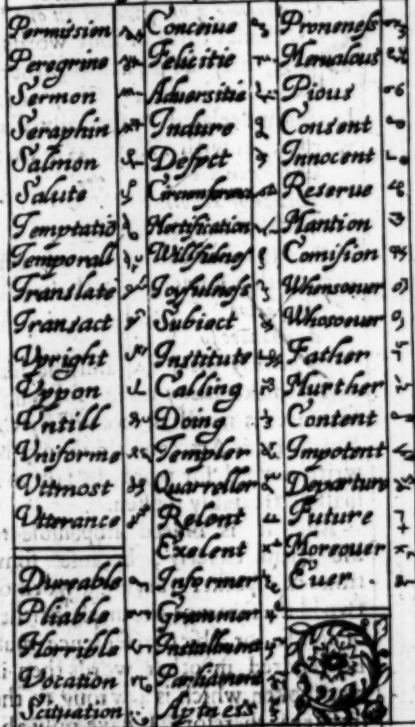 Permission
Peregrine
Sermon
Seraphin
Salmon
Salute
Temptatiō
Temporall
Translate
Transact
Vpright
Vppon
Vntill
Vniforme
Vttmost
Vtterance
Dureable
Pliable
Horrible
Vocation
Scituation
Conceiue
Felicitie
Aduersitie
Indure
Defect
Circumference
Mortification
Willfulnes
Joyfulness
Subiect
Institute
Calling
Doing
Templer
Quarreller
Relent
Exelent
Informer
Grammer
Installment
Parliament
Aptness
Proneness
Meruulous
Pious
Consent
Innocent
Reserue
Mantion
Comision
Whensoeuer
Whosoeuer
Father
Murther
Content
Impotent
Departure
Future
Moreouer
Euer .